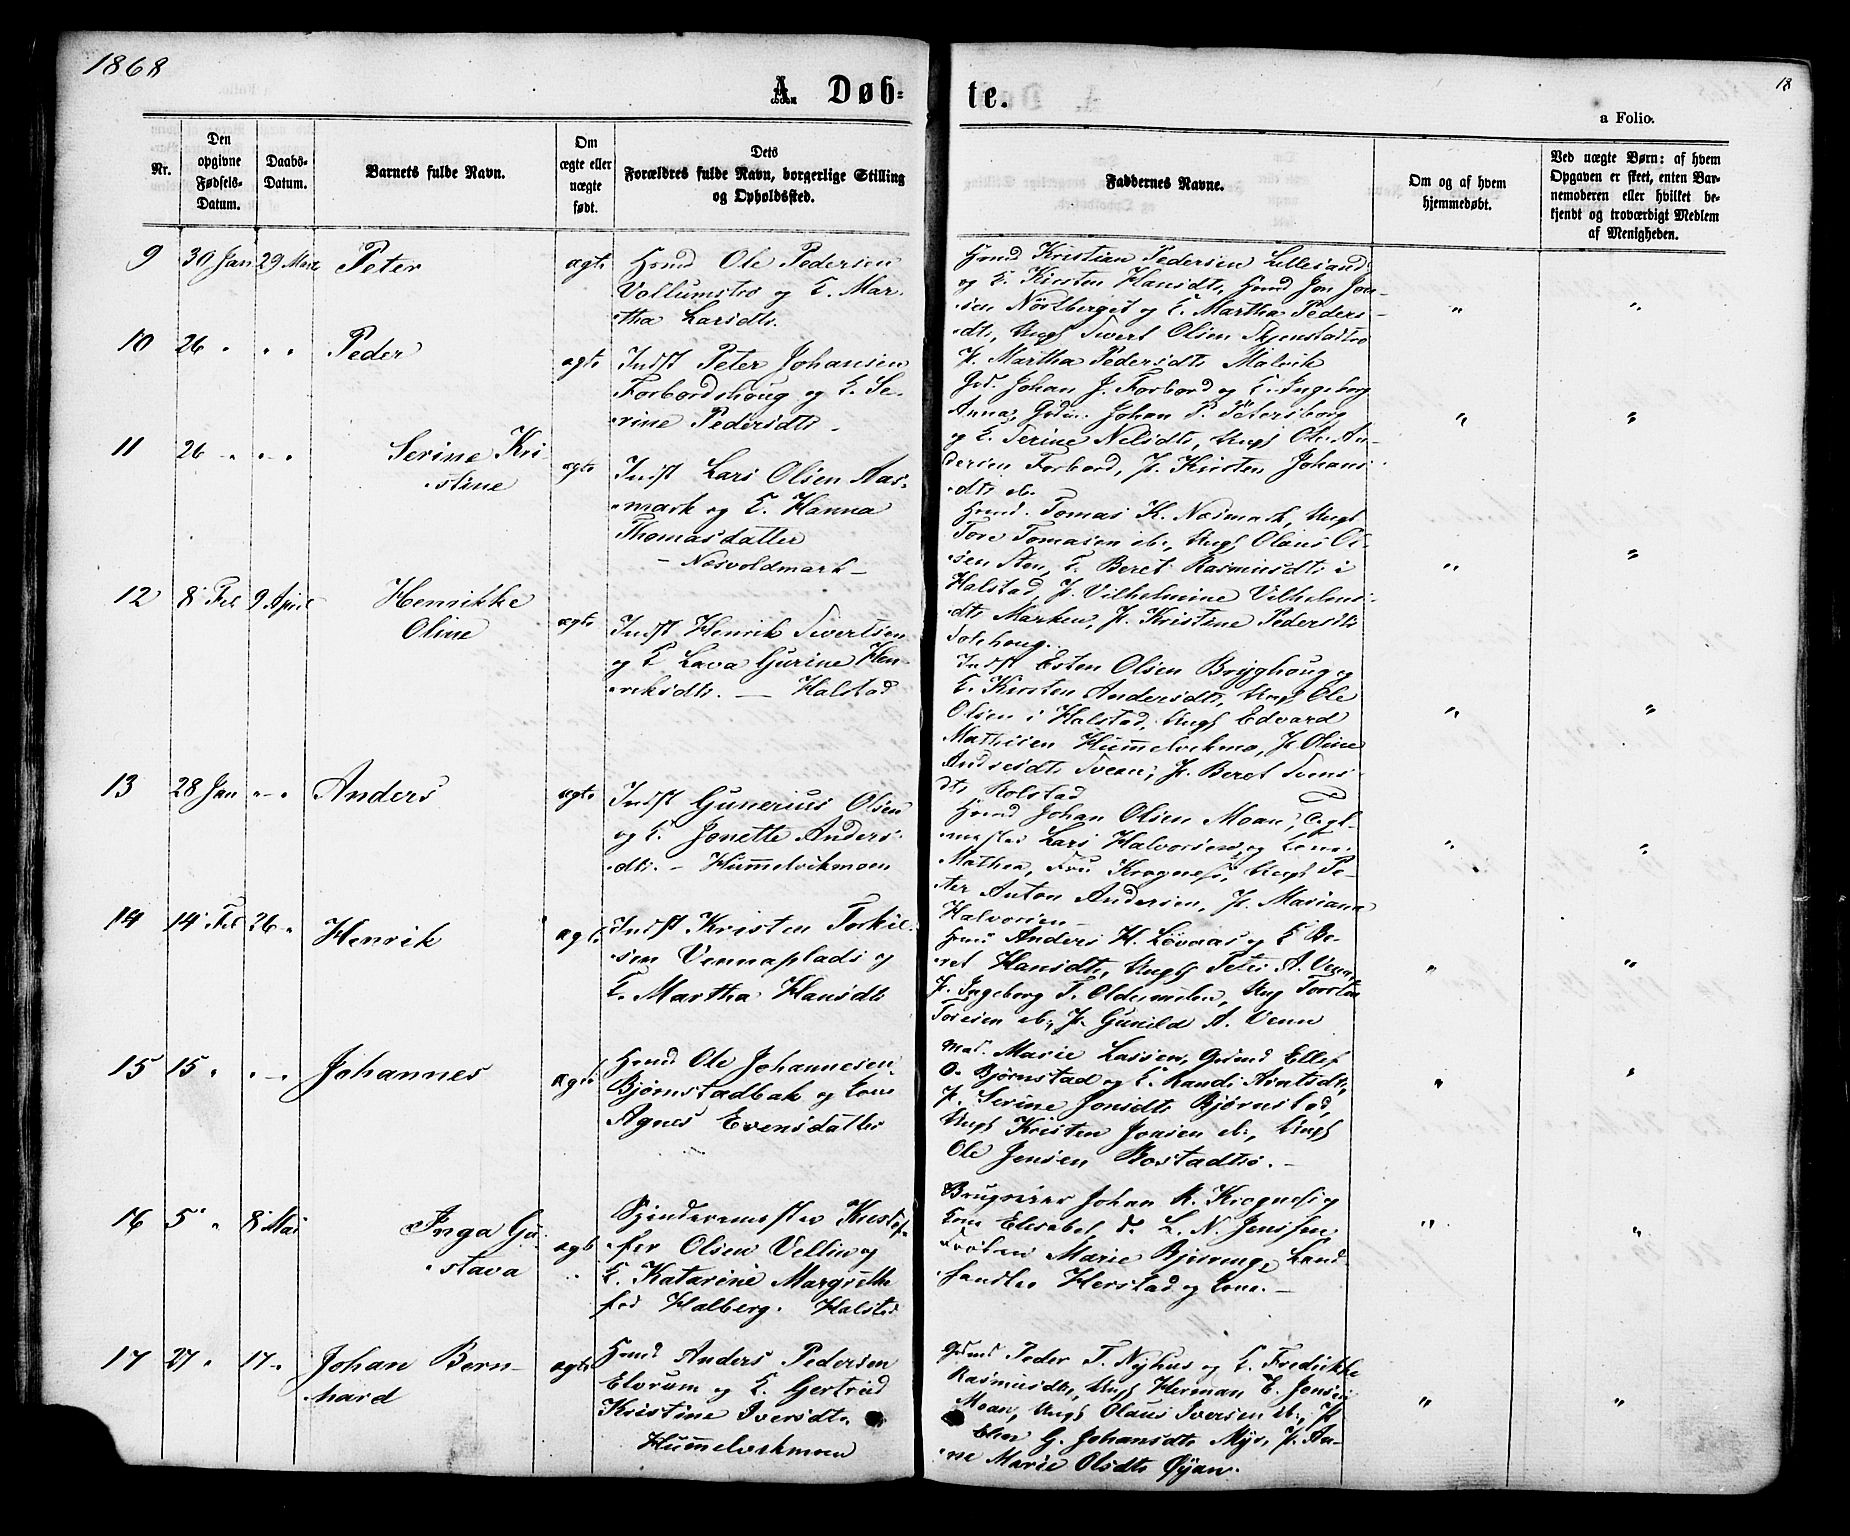 1868
18
A. Døb-
te.
a Folio.
Nr.
Den
opgivne
Fødsels-
Datum.
Daabs-
Datum.
Barnets fulde Navn.
Om
ægte eller
uægte
født.
Dets
Forældres fulde Navn, borgerlige Stilling
og Opholdssted.
Faddernes Navne.
Om og af hvem
hjemmedøbt.
Ved uægte Børn: af hvem
Opgaven er skeet, enten Bar-
nemoderen eller hvilket be-
kjendt og troværdigt Medlem
af Menigheden.
9 30 Jan 29 Mars Peter ægte
Ole Pedersen
Vollumstrø og E. Mar-
tha Larsdtr.
Kristian Pedersen Lillesand
og E. Kirsten Hansdtr, Jon Jon-
sen Nørlberget og E. Martha Peders-
dtr, Ungk Sivert Olsen
P. Martha Pedersdtr Malvik
10 26 " " " Peder ægte
Indst Peter Johansen
Forbordshoug og E. Se-
rine Pedersdtr.
Johan J. Forbord og E. Ingeborg
Anna, Johan P. Petersborg
og E. Serine Nelsdtr, Ungk Ole An-
dersen Forbord, P. Kirsten Johans
dtr eb.
11 26 " " " Serine Kri-
stine ægte
Indst Lars Olsen Aas-
mark og E. Hanna
Thomasdatter
- Næsvoldmark -
Tomas K. Næsmark, Ungk
Tore Tomasen eb., Ungk Olaus Ol-
sen Sten, E. Beret Rasmusdtr i
Halstad, P. Vilhelmine Vilhelms-
dtr Marken, P. Kristine Pedersdtr
12 8 Feb 9 April Henrikke
Oline ægte
Indst Henrik Sivertsen
og E Lava Gurine Hen-
riksdtr. - Halstad
Indst Esten Olsen Bryghoug og
E. Kirsten Andersdtr, Ungk Ole
Olsen i Halstad, Ungk Edvard
Mathisen Hummelvikmo, P. Oline
Andersdtr Svean, P. Beret
dtr Holstad
13 28 Jan " - " Anders ægte
Indst Gunerius Olsen
og E. Jonette Anders-
dtr. - Hummelvikmoen
Johan Olsen Moan, Tegl-
mester Lars Halvorsen og Kone
Mathea, Fru Kragness, Ungk Pe-
ter Anton Andersen, P. Mariana
Halvorsen -
14 14 Feb 26 " Henrik ægte
Indst Kristen Torkil-
sen Vennaplads og
E. Martha Hansdtr
Anders H. Løvaas og E Be-
ret Hansdtr, Ungk Peter A. Venn
P. Ingeborg T. Oldermelen, Ung Torsten
Toresen eb., P. Gunild A. Venn
15 15 " " - " Johannes ægte
Ole Johannesen
Bjørnstadbak og Kone
Agnes Evensdatter
Mad. Marie Lassen, Ellef
O. Bjørnstad og E. Randi Arntsdtr,
P. Serine Jonsdtr Bjørnstad,
Ungk Kristen Jonsen eb., Ungk
Ole Jensen Rostadtrø. -
16 5 " 8 Mai Inga Gu-
stava ægte
Spinderemester Kristof-
fer Olsen Vellin og
E. Katarine Margrethe
fød Halberg. Halstad
Brugseier Johan R. Kragness og
Kone Elisabet, L. N. Jenssen,
Frøken Marie Bjerring, Land-
handler Herstad og Kone. -
17 27 " 17 " Johan Bern-
hard ægte
Anders Pedersen
Elvrum og E. Gertrud
Kristine Iversdtr.
Hummelvikmoen
Peder T. Nyhus og E. Fredrikke
Rasmusdtr, Ungk Herman E. Jensen
Moan, Ungk Olaus Iversen eb., P
Elen G. Johansdtr Myr, P. An-
ne Marie Olsdtr Øyan.